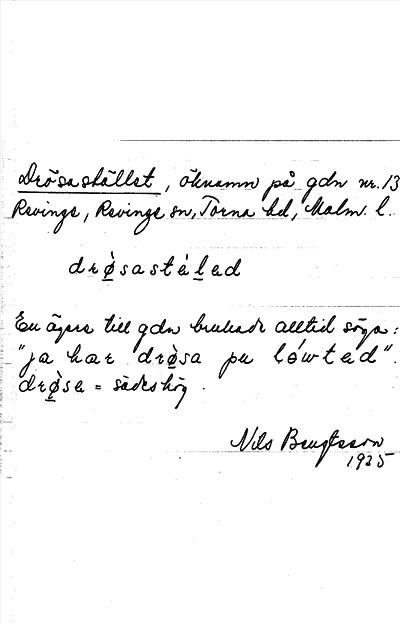 Drösastället, öknamn på gdn nr. 13
Revinge, Revinge sn, Torna hd, Malm. l.
drø̀sastéḷad
En ägare till gdn brukade alltid säga:
"ja har drø̀sa pu lówtəd".
drø̀sa = sädeshög.
Nils Bengtsson
1925